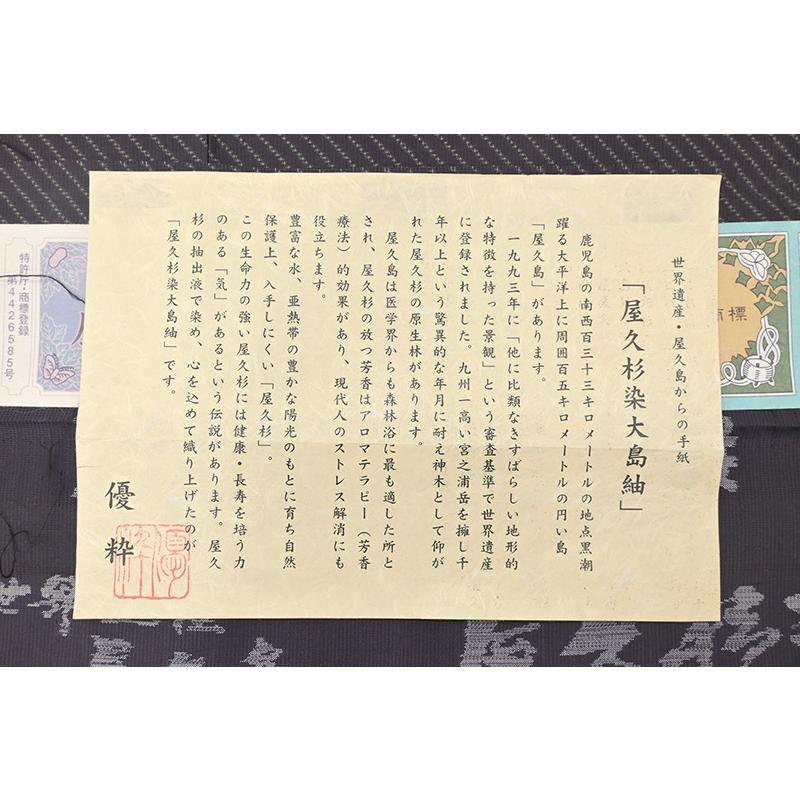 世界遺産・屋久島からの手紙
「屋久杉染大島紬」
鹿児島の南西百三十三キロメートルの地点黒潮
躍る太平洋上に周囲百五キロメートルの円い島
「屋久島」があります。
一九九三年に「他に比類なきすばらしい地形的
な特徴を持った景観」という審査基準で世界遺産
に登録されました。九州一高い宮之浦岳を擁し千
年以上という驚異的な年月に耐え神木として仰が
れた屋久杉の原生林があります。
屋久島は医学界からも森林浴に最も適した所と
され、屋久杉の放つ芳香はアロマテラピー（芳香
療法）的効果があり、現代人のストレス解消にも
役立ちます。
豊富な水、亜熱帯の豊かな陽光のもとに育ち自然
保護上、入手しにくい「屋久杉」。
この生命力の強い屋久杉には健康・長寿を培う力
のある「気」があるという伝説があります。屋久
杉の抽出液で染め、心を込めて織り上げたのが
「屋久杉染大島紬」です。
優粋
特許庁・商標登録
第4426585号
商標